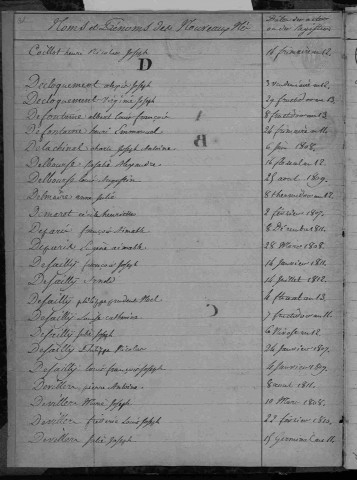 Noms et Prénoms des Nouveaux Nés
Dates des actes
ou des Registres
Collot henri Nicolas Joseph 16 frimaire an 12.
D
Decloquement Joseph
Decloquement Virginie Joseph 29 fructidor an 13.
Defontaine albert Louis françois 8 fructidor an 13.
A
Defontaine henri Emmanuel 26 frimaire an 14.
B
Delachinal Charles Joseph Antoine 6 juin 1808.
Delbourse Rosalie Alexandre 16 floréal an 12.
Delbourse Louis Augustin 25 avril 1809.
Delmaire Julie 8 thermidor an 12.
Demerot henriette 2 février 1807.
Departi françois 8 Décembre 1811.
Departi 28 Mars 1808.
Desailly françois Joseph 16 Janvier 1811.
Desailly 14 Juillet 1812.
Desailly philippe Noel 4 floréal an 13.
C
Desailly Louise Catherine 7 fructidor an 11.
Desailly Julie Joseph 6 Nivôse an 12.
Desailly Philippe Nicolas 24 Janvier 1807.
Desailly Louis François Joseph 4 Janvier 1809.
Devillers pierre Antoine 8 août 1811.
Devillers Marie Joseph 10 Mars 1808.
Devillers Louis Joseph 22 février 1810.
Devillers Julie Joseph 15 Germinal an 11.